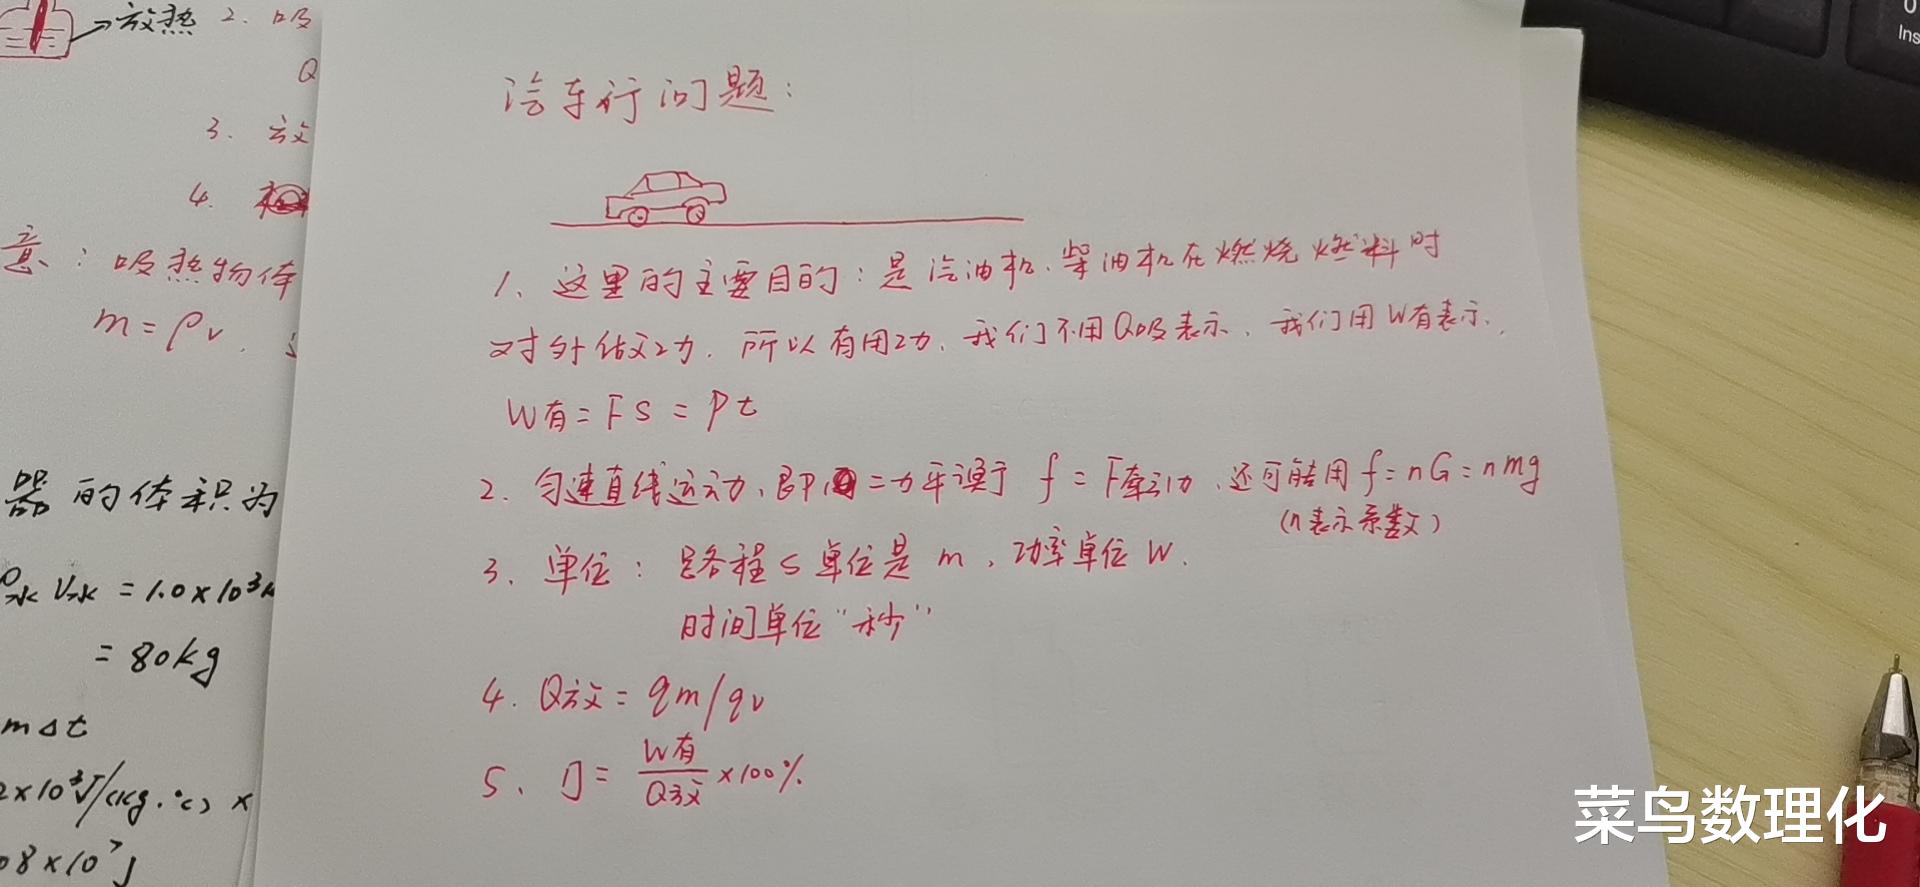 放热 2. 吸
Q
3. 放
4.
意：吸热物体
m = ρv
器的体积为
ρ水 V水 = 1.0×10³k
= 80kg
m△t
2×10³J/(kg·℃) ×
08×10⁷J
汽车行问题：
1、这里的主要目的：是汽油机、柴油机在燃烧燃料时
对外做功，所以有用功，我们不用Q吸表示、我们用W有表示，
W有 = FS = Pt
2. 匀速直线运动、即 二力平衡 f = F牵引力，还可能用 f = nG = nmg
(n表示系数)
3、单位：路程S单位是 m、功率单位 W.
时间单位“秒”
4. Q放 = qm/qv
5、η = W有/Q放 ×100%
0
Ins
菜鸟数理化